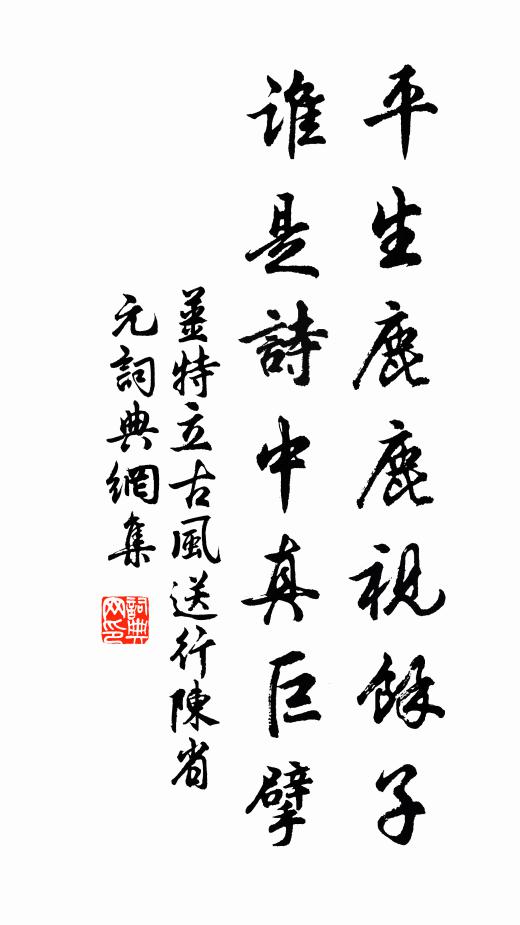 平生鹿鹿視餘子
誰是詩中真巨擘
姜特立古風送行陳省
元詞典網集
詞典
网印